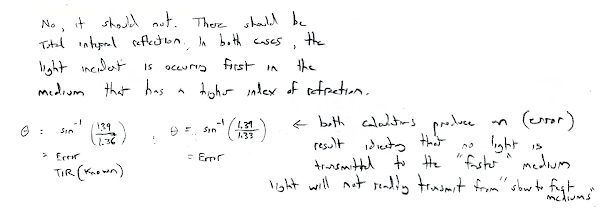 No, it should not. There should be
Total integral reflection. In both cases, the
light incident is occuring first in the
medium that has a higher index of refraction.
θ = sin⁻¹ (1.39/1.36) ; θ = sin⁻¹ (1.39/1.33) ← both calculations produce an (error)
= Error = Error result idicating that no light is
TIR (known) transmitted to the "faster" medium
light will not really transmit from "slow to fast
mediums"